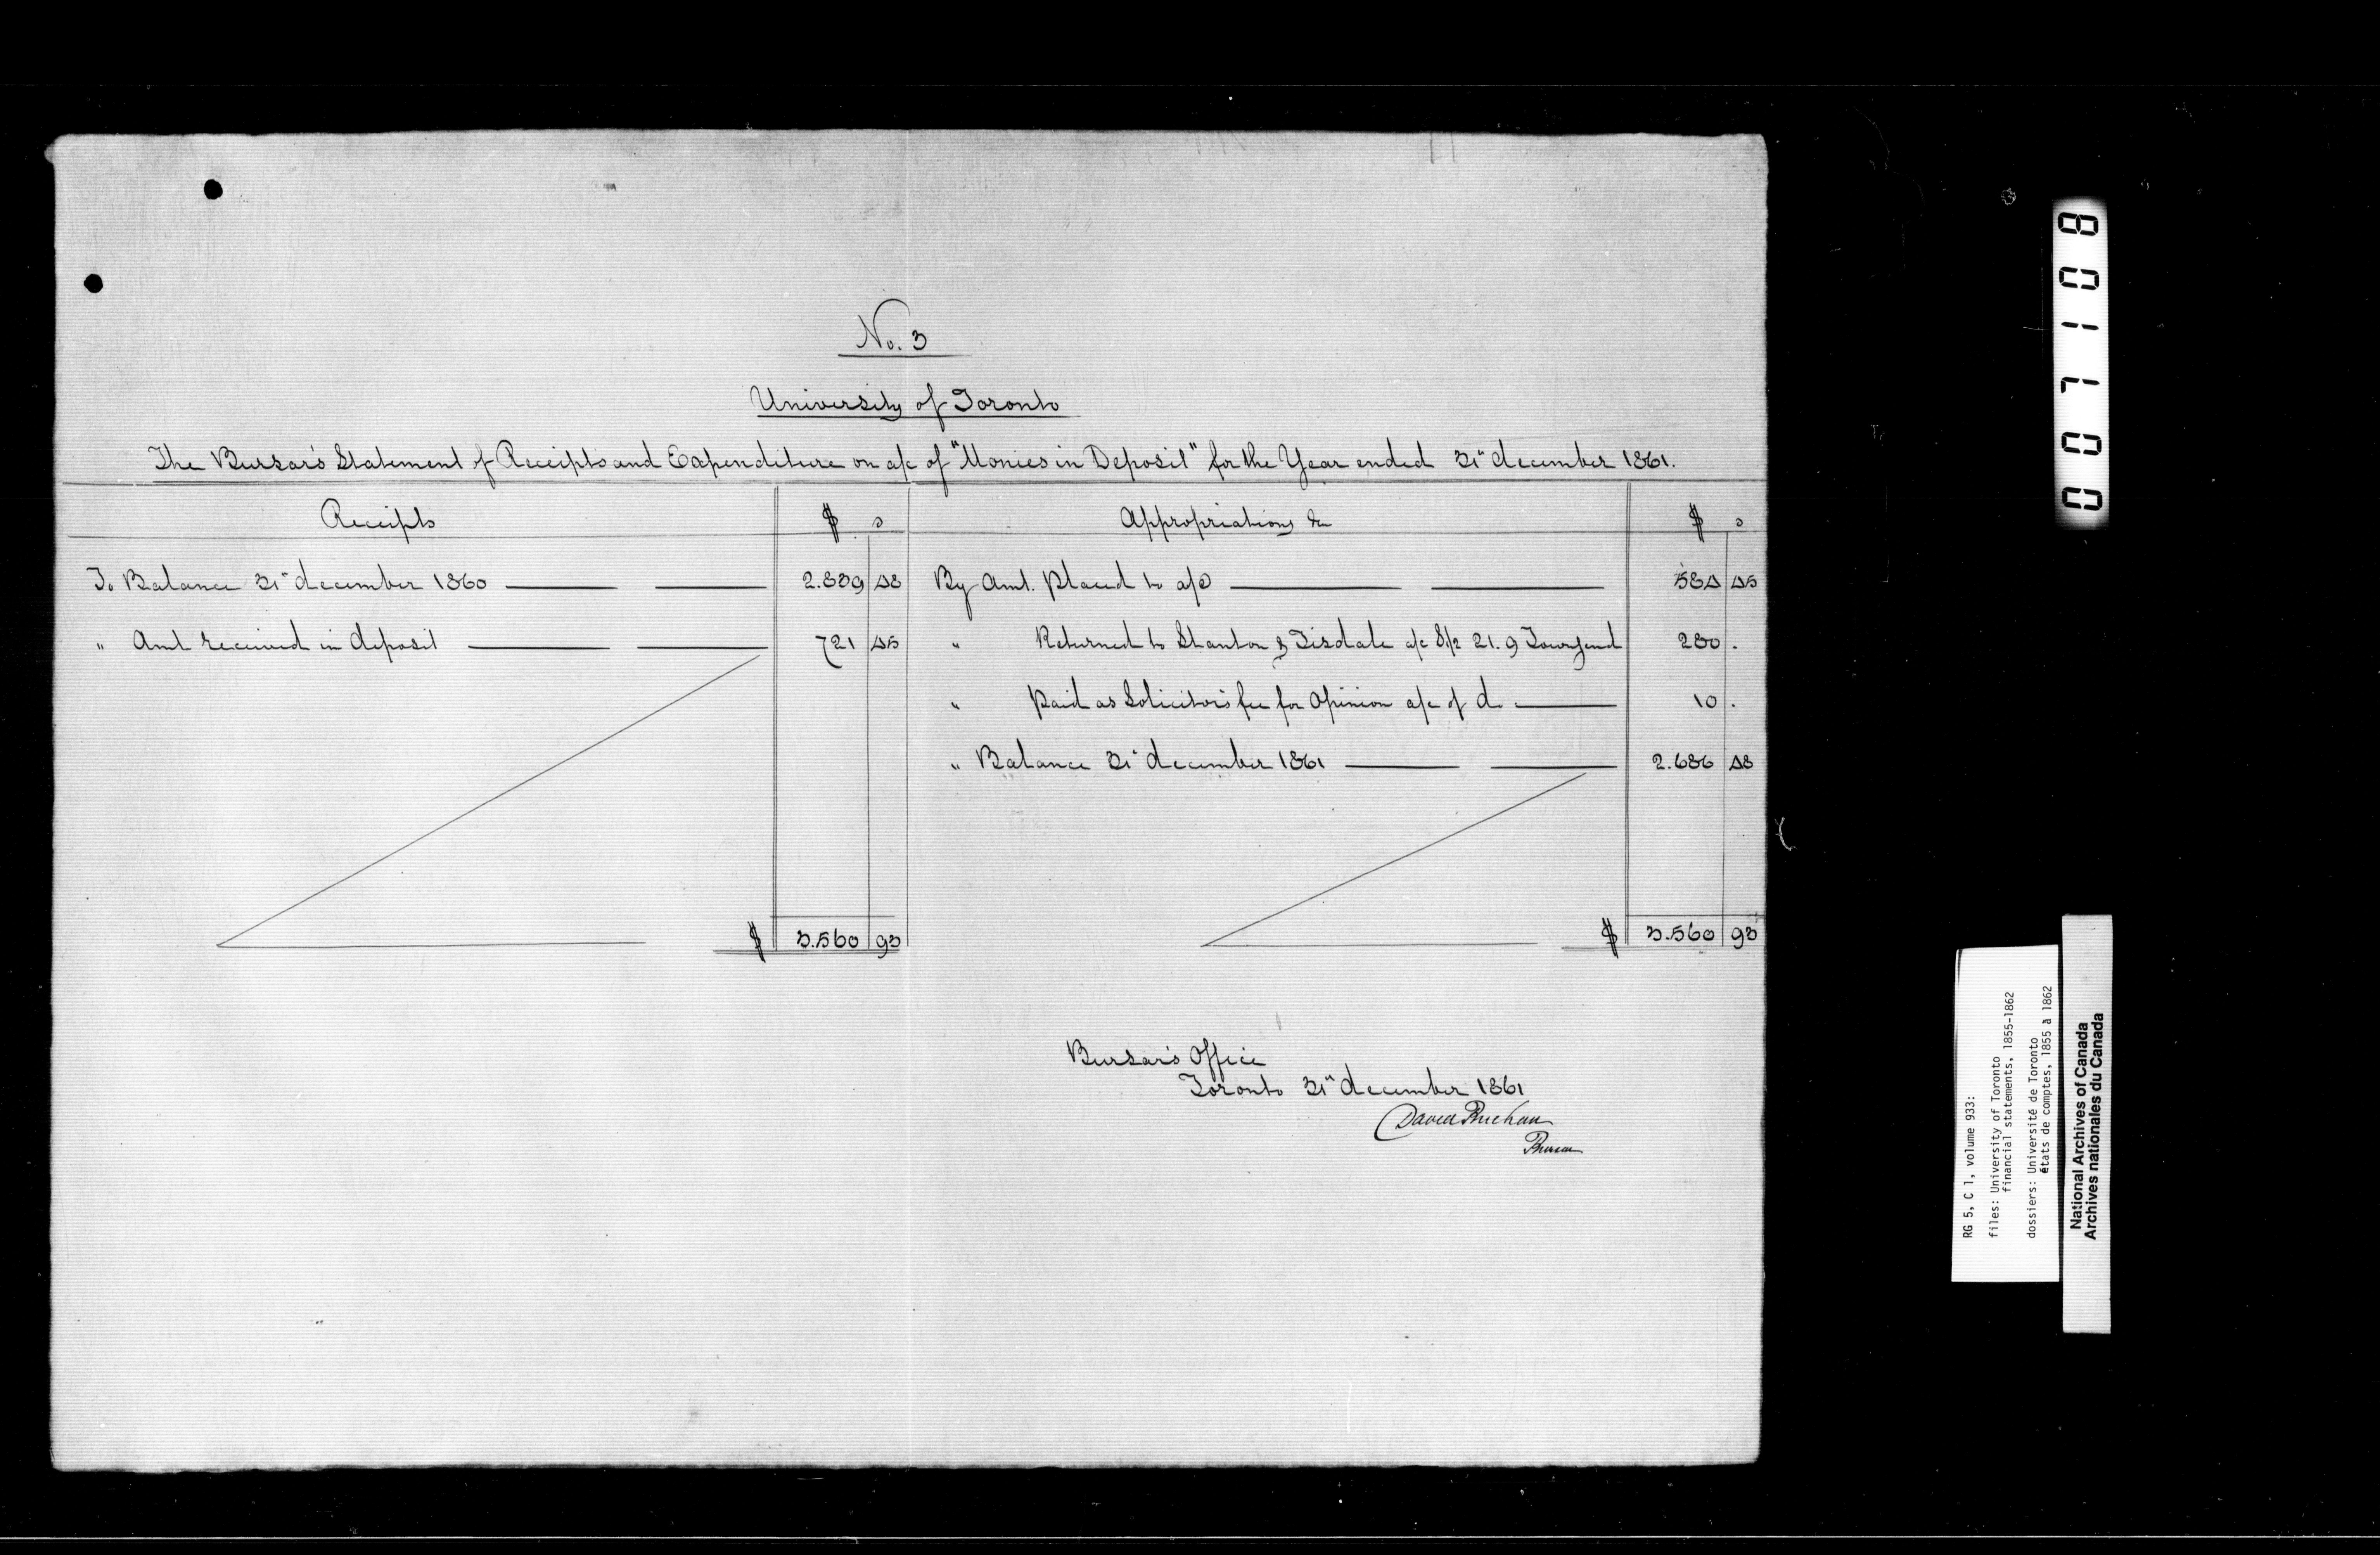 No. 3
University of Toronto
The Bursar's Statement of Receipts and Expenditure on a/c of "Monies in Deposit" for the Year ended 31st december 1861.
Receipts $ c
To Balance 31st december 1860 2.839 48
" Amt received in deposit 721 45
$ 3.560 93
Appropriations &c
$ c
By Amt. placed to a/c 584 45
" Returned to Stanton & Tisdale a/c S1/2 21. 9 Townsend 280 .
" Paid as Solicitor's fee for Opinion a/c of do 10 .
" Balance 31st december 1861 2.686 48
$ 3.560 93
Bursar's Office
Toronto 31st december 1861
David Buchan
Bursar
0007108
RG 5, C 1, volume 933:
files: University of Toronto
financial statements, 1855-1862
dossiers: Université de Toronto
états de comptes, 1855 à 1862
National Archives of Canada
Archives nationales du Canada